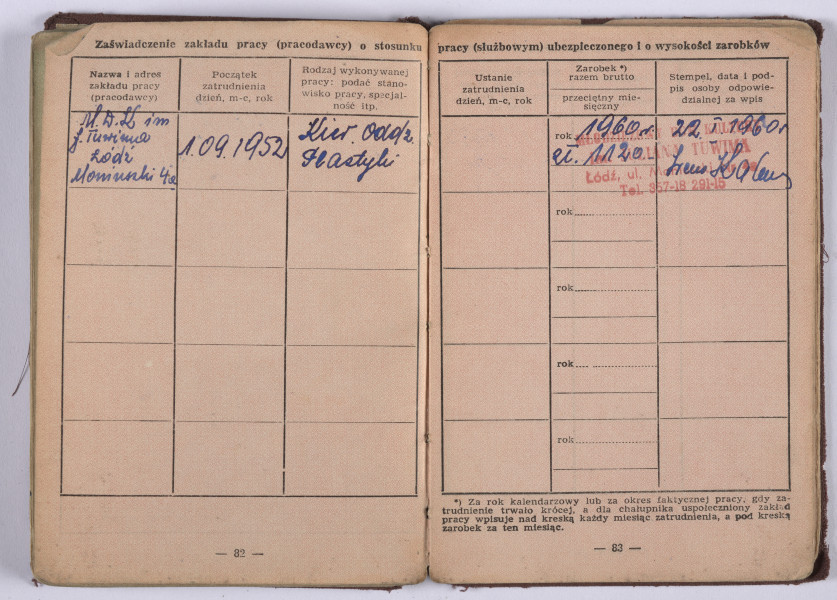 Zaświadczenie zakładu pracy (pracodawcy) o stosunku pracy (służbowym) ubezpieczonego i o wysokości zarobków
Nazwa i adres
zakładu pracy
(pracodawcy)
Początek
zatrudnienia
dzień, m-c, rok
Rodzaj wykonywanej
pracy: podać stano-
wisko pracy, specjal-
ność itp.
M.D.K im
J. Tuwima
Łódź
Moniuszki 4a
1.09.1952
Kier. Oddz.
Plastyki
— 82 —
Ustanie
zatrudnienia
dzień, m-c, rok
Zarobek *)
razem brutto
przeciętny mie-
sięczny
Stempel, data i pod-
pis osoby odpowie-
dzialnej za wpis
rok 1960 r.
zł. 1120
22 I 1960 r
TUWIMA
Łódź, ul.
Tel. 357-18 291-15
rok
rok
rok
rok
*) Za rok kalendarzowy lub za okres faktycznej pracy, gdy za-
trudnienie trwało krócej, a dla chałupnika uspołeczniony zakład
pracy wpisuje nad kreską każdy miesiąc zatrudnienia, a pod kreską
zarobek za ten miesiąc.
— 83 —